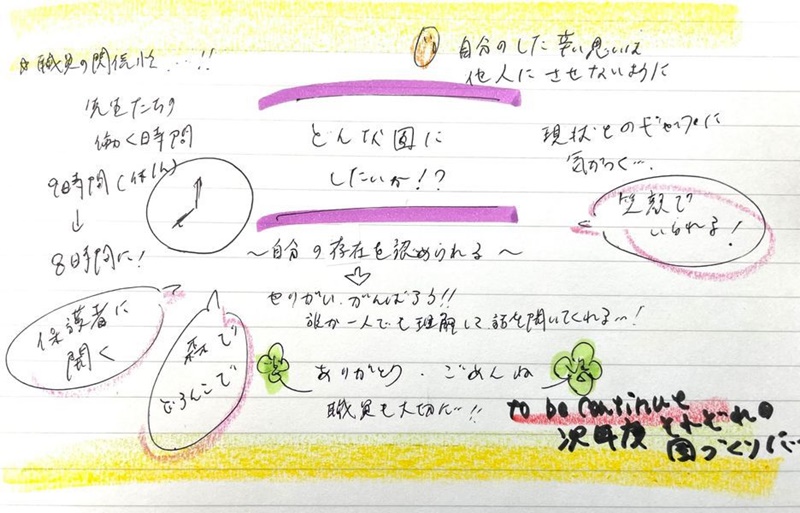 ☆職員の関係性…!!
自分のした辛い思いは
他人にさせないように
先生たちの
働く時間
9時間(休1h)
↓
8時間に!
どんな園に
したいか!?
現状とのギャップに
気がつく…
笑顔で
いられる!
〜自分の存在を認められる〜
やりがい、がんばろう!!
誰か一人でも理解して話を聞いてくれる…!
保護者に
開く
森で
どろんこで
ありがとう・ごめんね
職員も大切に…!!
to be continue
次年度 それぞれの
園づくりに…